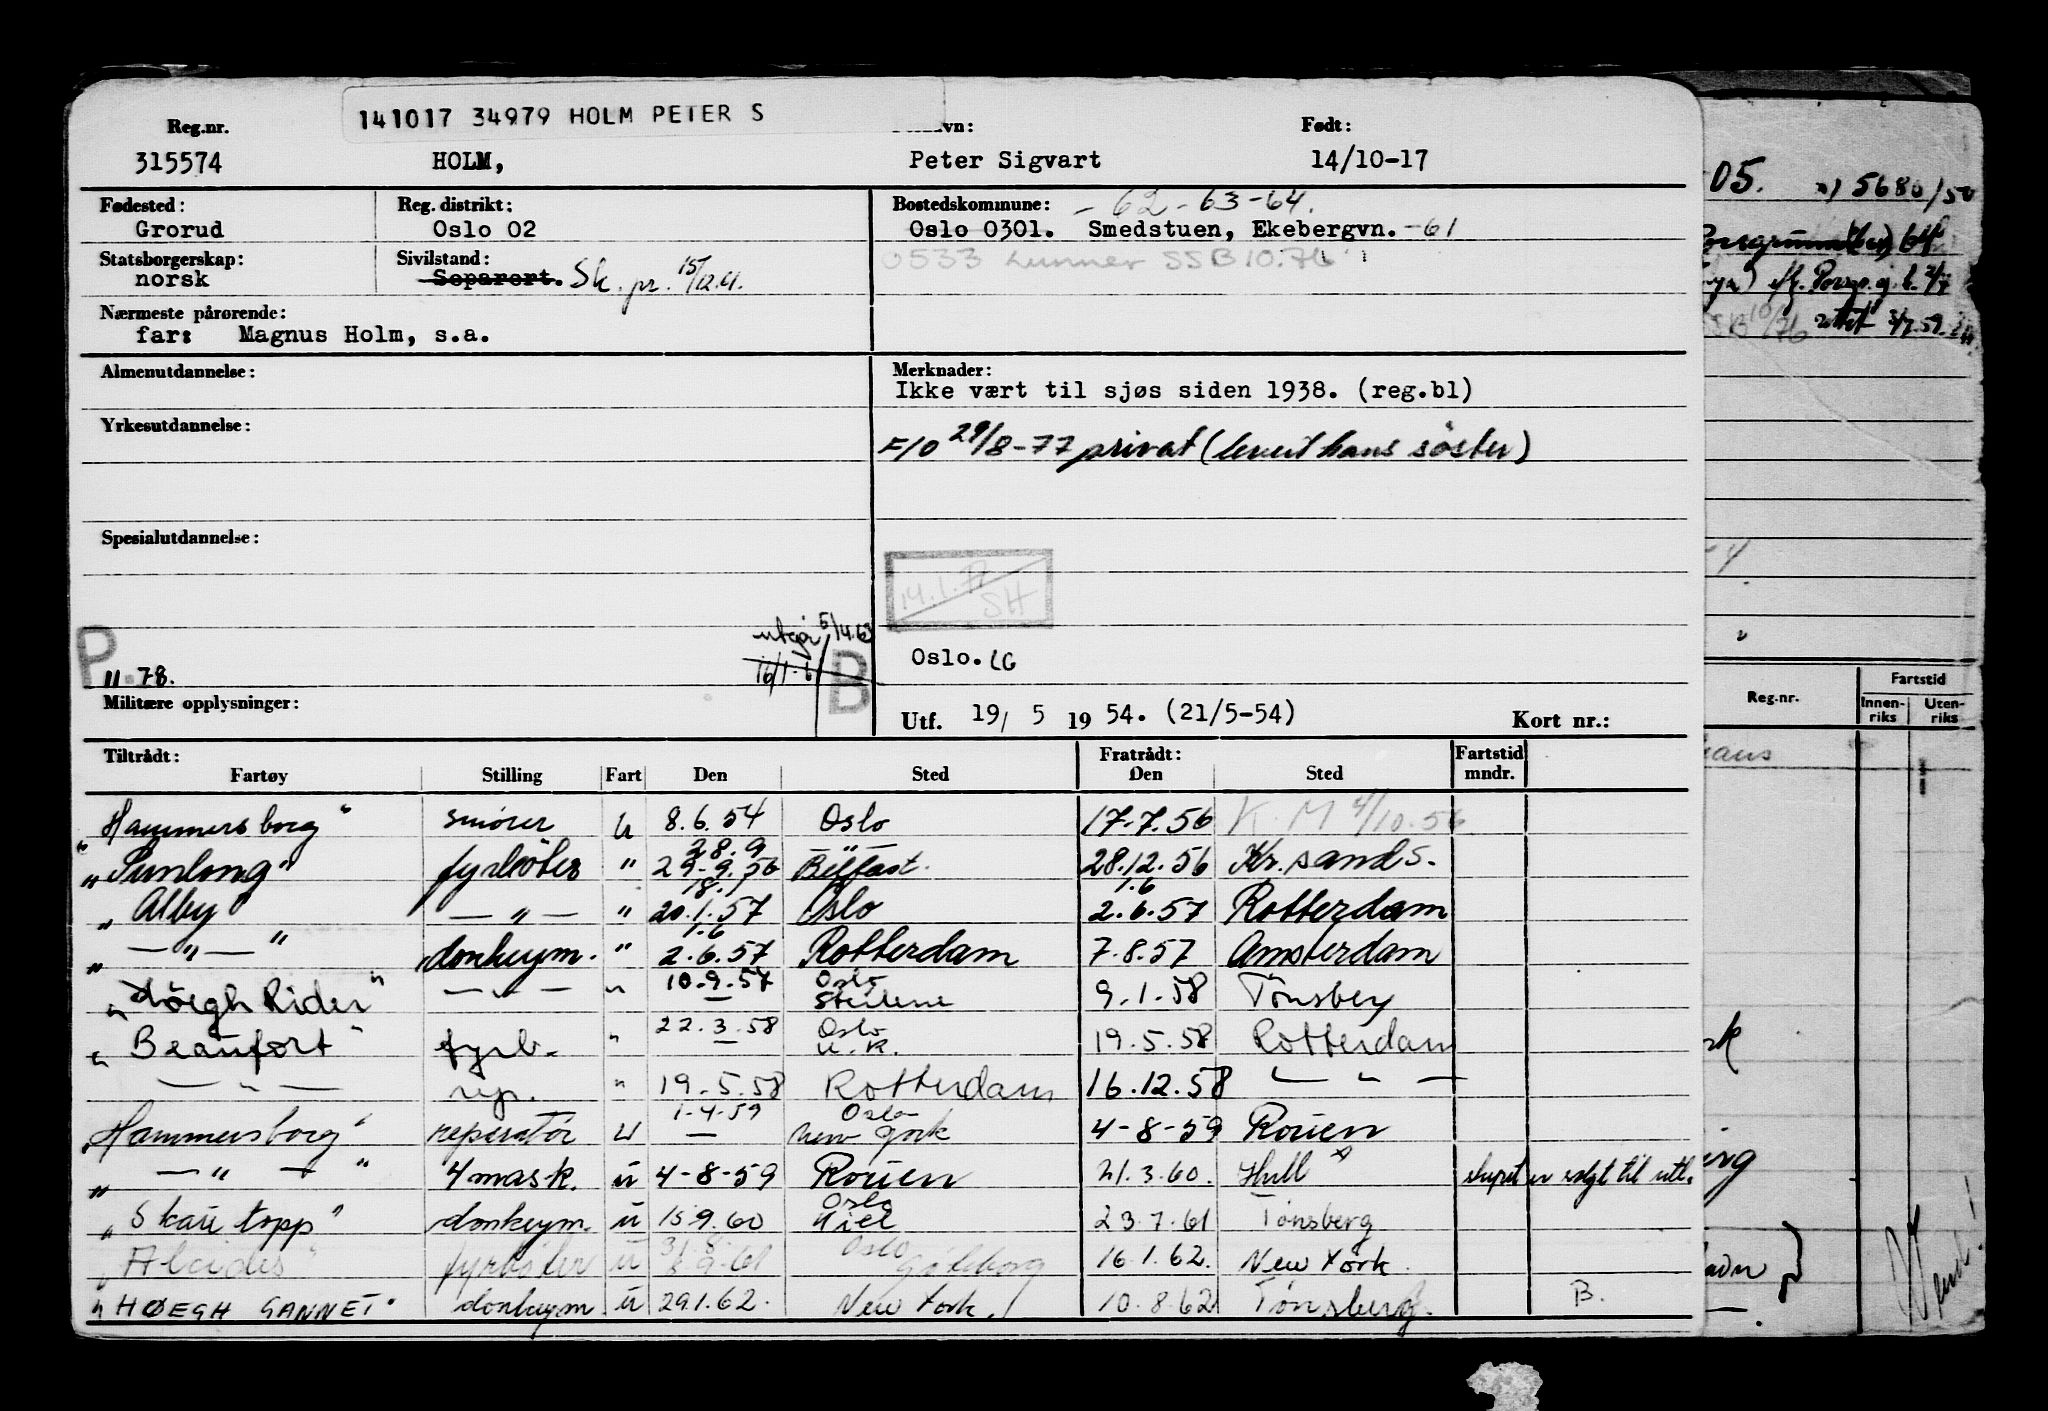 141017 34979 HOLM PETER S
Reg.nr. Født:
315574 HOLM, Peter Sigvart 14/10-17
Fødested: Reg. distrikt: Bostedskommune: - 62 - 63 - 64.
Grorud Oslo 02 Oslo 0301. Smedstuen, Ekebergvn. -61
Statsborgerskap: Sivilstand: 0533 Lunner SSB 10.76
norsk Separert. Sk. pr. 15/12.61.
Nærmeste pårørende:
far: Magnus Holm, s.a.
Almenutdannelse: Merknader:
Ikke vært til sjøs siden 1938. (reg.bl)
Yrkesutdannelse:
F/O 29/8-77 privat (levert hans söster)
Spesialutdannelse:
14.1.77
SH
utgår 5/4.63
16/1.61
P. B
Oslo. LG
11.78.
Militære opplysninger:
Utf. 19/ 5 19 54. (21/5-54) Kort nr.:
Tiltrådt: Fratrådt: Fartstid
Fartøy Stilling Fart Den Sted Den Sted mndr.
"Hammersborg" smører U 8.6.54 Oslo 17.7.56 K.M 4/10.56
28.9 — " —
"Sunlong" fyrbøter " 29.9.56 Belfast. 28.12.56 Kr.sand S.
18.1 1.6
"Alby — " — " 20.1.57 Oslo 2.6.57 Rotterdam
1.6
" — " — " donkeym. " 2.6.57 Rotterdam 7.8.57 Amsterdam
10.9.57 Oslo
"Höegh Rider" — " — " — Steilene 9.1.58 Tönsberg
22.3.58 Oslo
"Beaufort" fyrb. " — U.K. 19.5.58 Rotterdam
— " — rep. " 19.5.58 Rotterdam 16.12.58 — " —
1-4-59 Oslo
"Hammersborg" reperatör U — New York 4-8-59 Rouen
" — " — " 4 mask. U 4-8-59 Rouen 21.3.60. Hull skipet er solgt til utl.
Oslo
"Skautopp" donkeym. U 15.9.60 Kiel 23.7.61 Tönsberg
31.8. Oslo
"Alcides" fyrbøter U 9-61 Göteborg 16.1.62. New York.
"HØEGH GANNET" donkeym. U 29.1.62. New York. 10.8.62 Tönsberg. B.
05. 5680/50
Reg.nr. Fartstid
Innen-
riks Uten-
riks